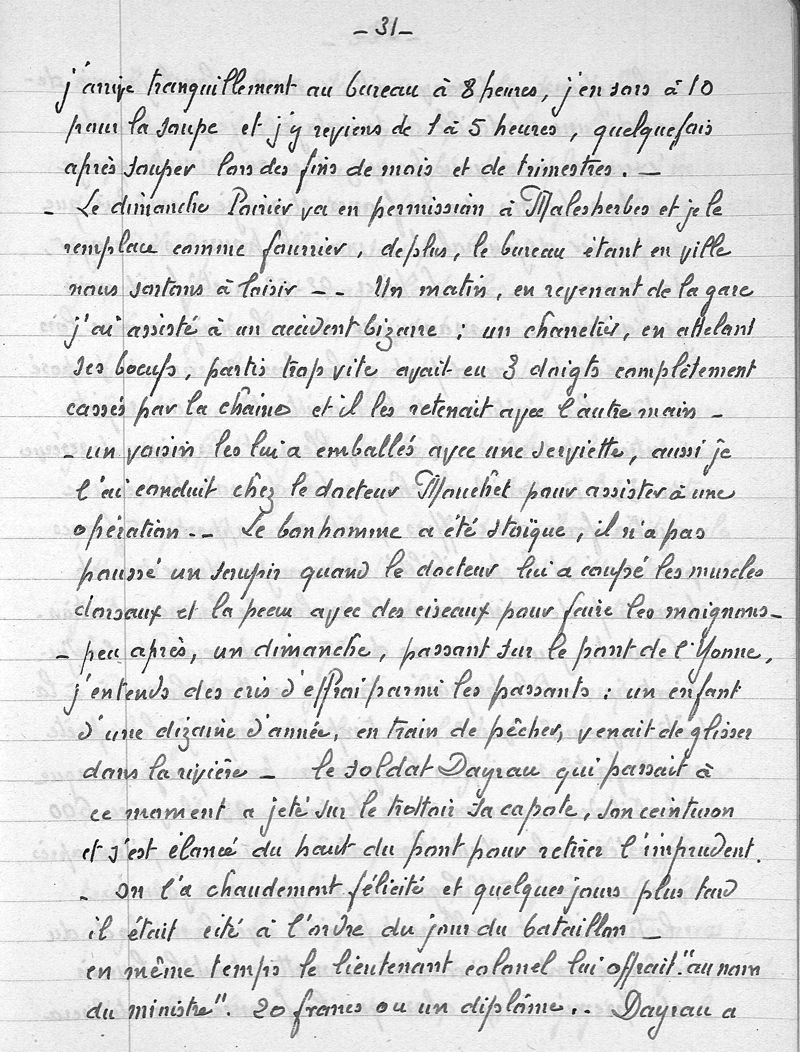 - 31 -
j'arrive tranquillement au bureau à 8 heures, j'en sors à 10
pour la soupe et j'y reviens de 1 à 5 heures, quelquefois
après souper lors des fins de mois et de trimestres. -
- Le dimanche Poirier va en permission à Malesherbes et je le
remplace comme fourrier, de plus, le bureau étant en ville
nous sortons à loisir - - Un matin, en revenant de la gare
j'ai assisté à un accident bizarre : un charretier, en attelant
ses boeufs, partis trop vite avait eu 3 doigts complètement
cassés par la chaine et il les retenait avec l'autre main -
- un voisin les lui a emballés avec une serviette, aussi je
l'ai conduit chez le docteur Mouchet pour assister à une
opération - - Le bonhomme a été stoïque, il n'a pas
poussé un soupir quand le docteur lui a coupé les muscles
dorsaux et la peau avec des ciseaux pour faire les moignons -
- peu après, un dimanche, passant sur le pont de l'Yonne,
j'entends des cris d'effroi parmi les passants : un enfant
d'une dizaine d'année, en train de pêcher, venait de glisser
dans la rivière - le soldat Dayrau qui passait à
ce moment a jeté sur le trottoir sa capote, son ceinturon
et s'est élancé du haut du pont pour retirer l'imprudent.
- On l'a chaudement félicité et quelques jours plus tard
il était cité à l'ordre du jour du bataillon -
en même temps le lieutenant colonel lui offrait "au nom
du ministre". 20 francs ou un diplôme .. Dayrau a